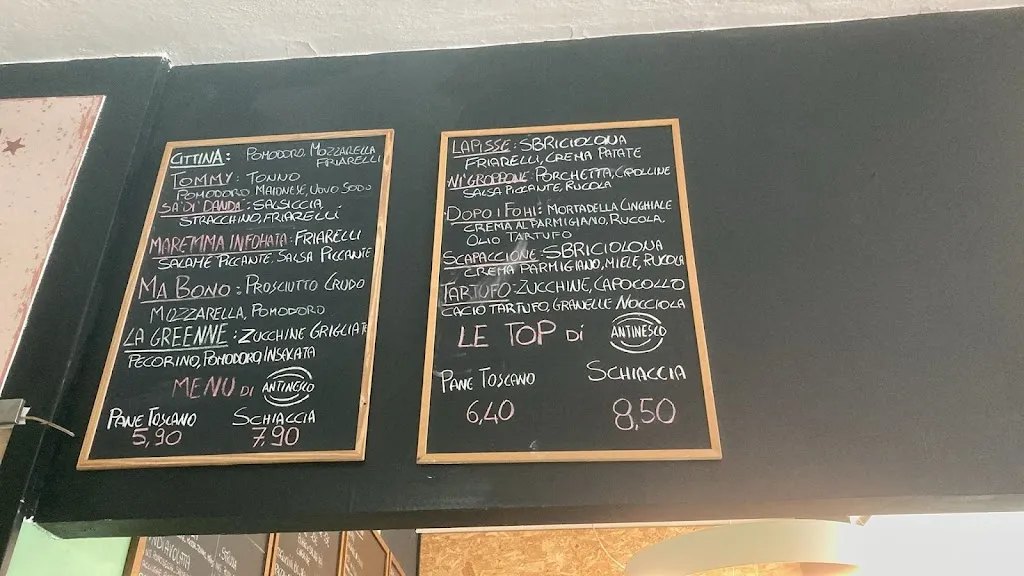 CITTINA: POMODORO, MOZZARELLA
FRIARELLI
TOMMY: TONNO
POMODORO, MAIONESE, UOVO SODO
SA DI' DANDA: SALSICCIA
STRACCHINO, FRIARELLI
MAREMMA INFOHATA: FRIARELLI
SALAME PICCANTE, SALSA PICCANTE
MA BONO: PROSCIUTTO CRUDO
MOZZARELLA, POMODORO
LA GREENNE: ZUCCHINE GRIGLIATE
PECORINO, POMODORO, INSALATA
MENU DI ANTINESCO
PANE TOSCANO SCHIACCIA
5,90 7,90
LAPISSE: SBRICIOLONA
FRIARELLI, CREMA PATATE
NI' GROPPONE: PORCHETTA, CIPOLLINE
SALSA PICCANTE, RUCOLA
DOPO I FOHI: MORTADELLA CINGHIALE
CREMA AL PARMIGIANO, RUCOLA,
OLIO TARTUFO
SCAPACCIONE: SBRICIOLONA
CREMA PARMIGIANO, MIELE, RUCOLA
TARTUFO: ZUCCHINE, CAPOCOLLO
CACIO TARTUFO, GRANELLE NOCCIOLA
LE TOP Di ANTINESCO
PANE TOSCANO SCHIACCIA
6,40 8,50